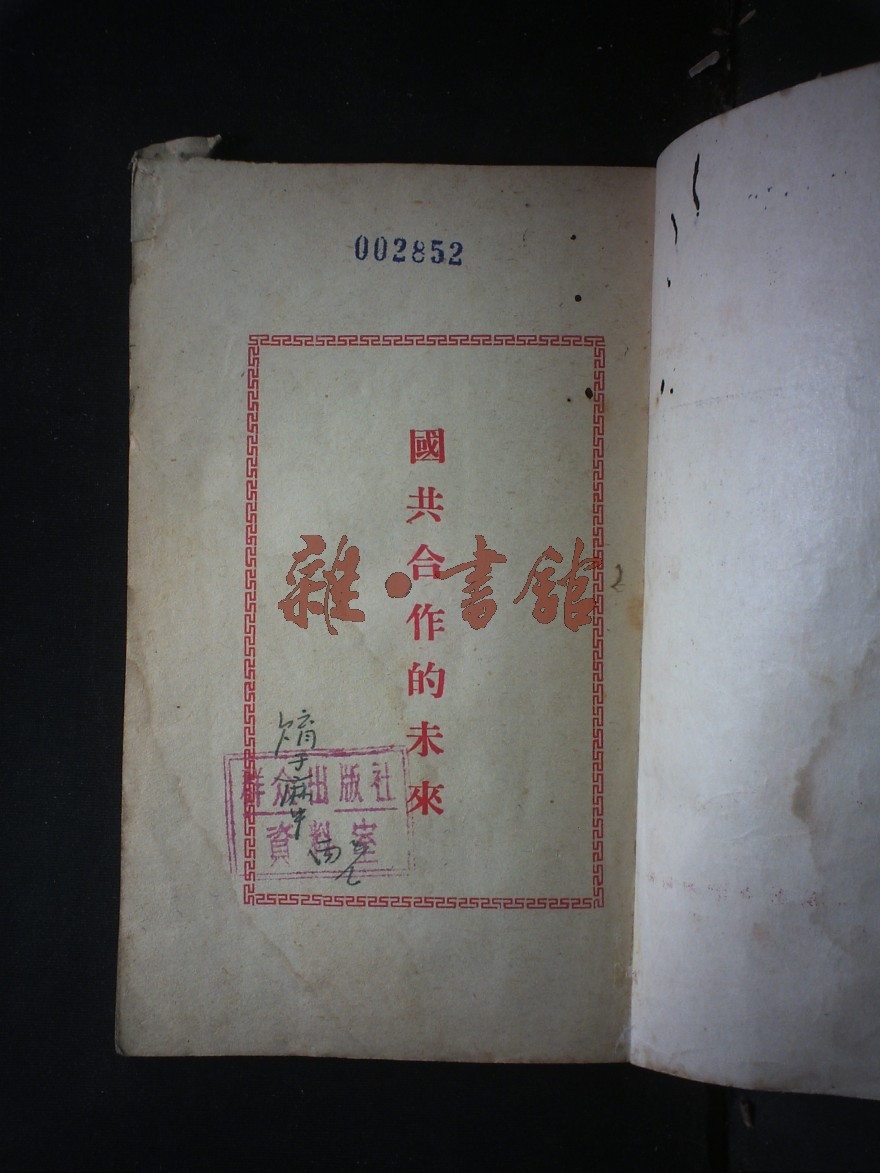 002852
國共合作的未來
雜·書館
群众出版社
資料室